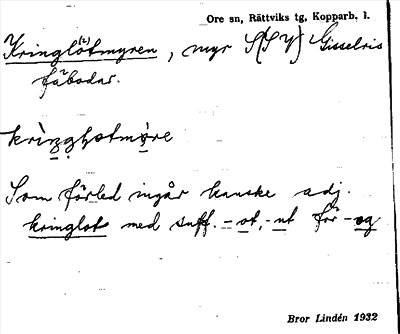 Ore sn, Rättviks tg, Kopparb. l.
Kringlot(t)myren, myr S(SV) Gisselris
fäbodar.
krìngḷotmỳre
Som förled ingår kanske adj.
kringlot med suff. -ot, -ut för -og
Bror Lindén 1932